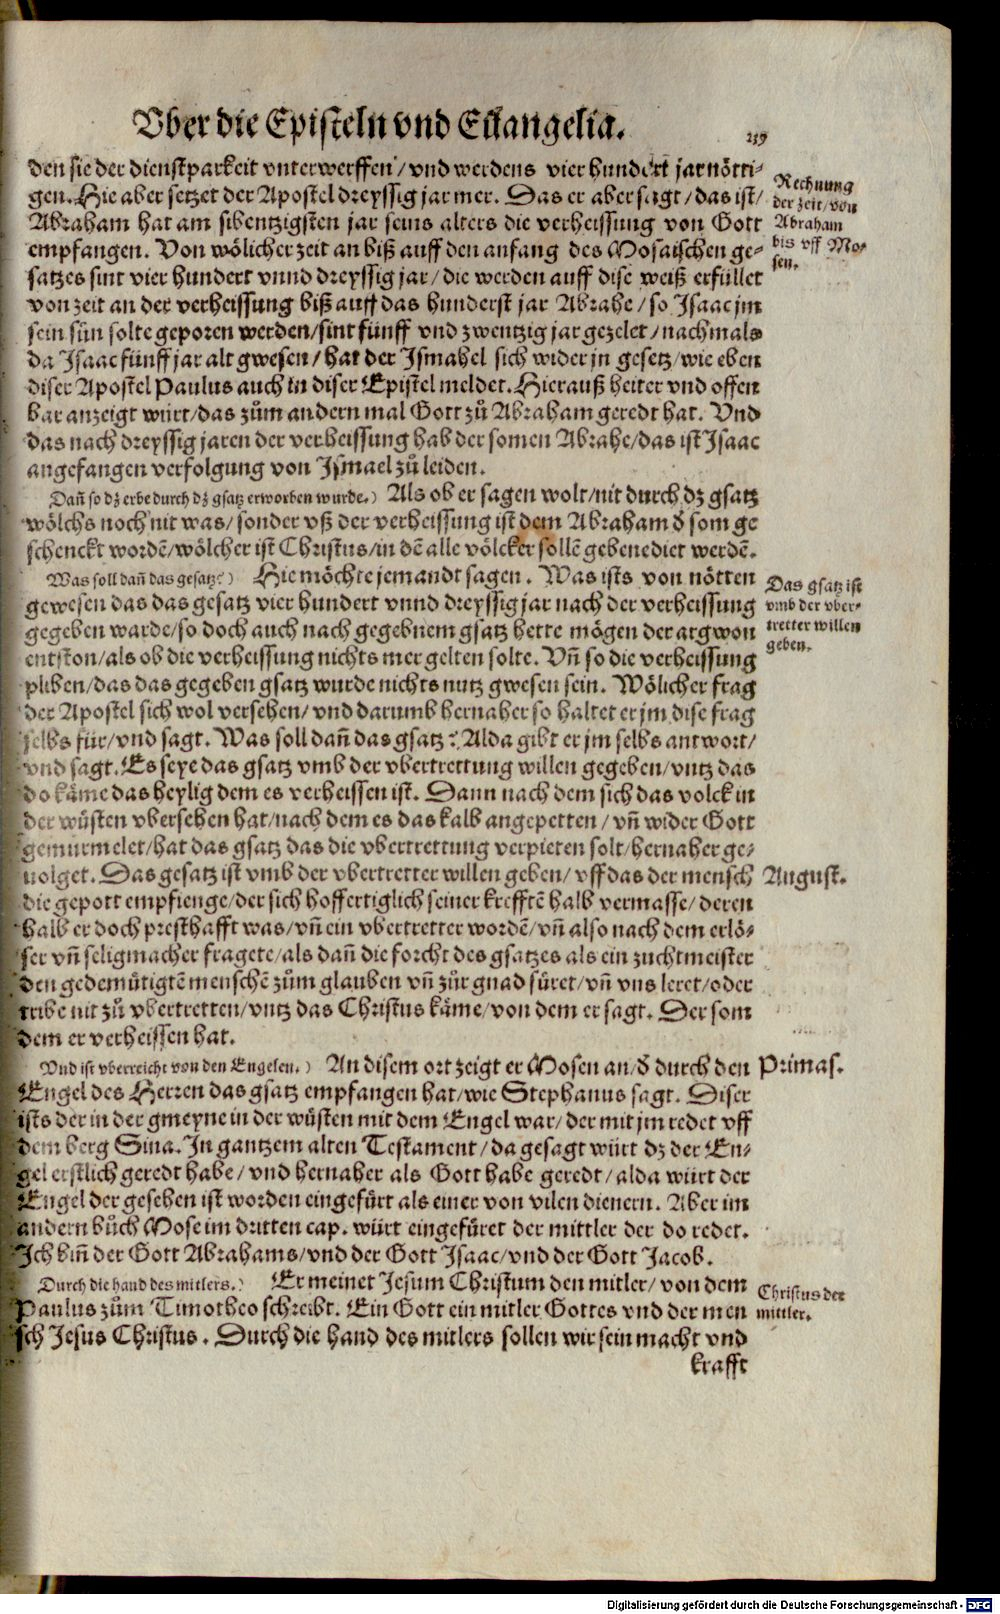 Vber die Episteln vnd Euangelia.
239
den sie der dienstparkeit vnterwerffen / vnd werdens vier hundert jar nötti-
gen. Hie aber setzet der Apostel dreyssig jar mer. Das er aber sagt / das ist /
Abraham hat am sibentzigsten jar seins alters die verheissung von Gott
empfangen. Von wölicher zeit an biß auff den anfang des Mosaischen ge-
satzes sint vier hundert vnnd dreyssig jar / die werden auff dise weiß erfüllet
von zeit an der verheissung biß auff das hunderst jar Abrahe / so Isaac jm
sein sün solte geporen werden / sint fünff vnd zwentzig jar gezelet / nachmals
da Isaac fünff jar alt gwesen / hat der Ismahel sich wider jn gesetz / wie eben
diser Apostel Paulus auch in diser Epistel meldet. Hierauß heiter vnd offen
bar anzeigt würt / das zům andern mal Gott zů Abraham geredt hat. Vnd
das nach dreyssig jaren der verheissung hab der somen Abrahe / das ist Isaac
angefangen verfolgung von Ismael zů leiden.
Rechnung
der zeit / von
Abraham
bis vff Mo-
sen.
Dañ so dz erbe durch dz gsatz erworben wurde. ) Als ob er sagen wolt / nit durch dz gsatz
wölchs noch nit was / sonder vß der verheissung ist dem Abraham d̄ som ge
schenckt wordē / wölcher ist Christus / in dē alle völcker sollē gebenediet werdē.
Was soll dañ das gesatz? ) Hie möchte jemandt sagen. Was ists von nötten
gewesen das das gesatz vier hundert vnnd dreyssig jar nach der verheissung
gegeben warde / so doch auch nach gegebnem gsatz hette mögen der argwon
entston / als ob die verheissung nichts mer gelten solte. Vñ so die verheissung
pliben / das das gegeben gsatz wurde nichts nutz gwesen sein. Wölicher frag
der Apostel sich wol versehen / vnd darumb hernaher so haltet er jm dise frag
selbs für / vnd sagt. Was soll dañ das gsatz? Alda gibt er jm selbs antwort /
vnd sagt. Es seye das gsatz vmb der vbertrettung willen gegeben / vntz das
do käme das heylig dem es verheissen ist. Dann nach dem sich das volck in
der wüsten vbersehen hat / nach dem es das kalb angepetten / vñ wider Gott
gemürmelet / hat das gsatz das die vbertrettung verpieten solt / hernaher ge-
uolget. Das gesatz ist vmb der vbertretter willen geben / vff das der mensch
die gepott empfienge / der sich hoffertiglich seiner krefftē halb vermasse / deren
halb er doch presthafft was / vñ ein vbertretter wordē / vñ also nach dem erlö-
ser vñ seligmacher fragete / als dañ die forcht des gsatzes als ein zuchtmeister
den gedemütigtē menschē zům glauben vñ zůr gnad füret / vñ vns leret / oder
tribe nit zů vbertretten / vntz das Christus käme / von dem er sagt. Der som
dem er verheissen hat.
Das gsatz ist
vmb der vber-
tretter willen
geben.
August.
Vnd ist vberreicht von den Engelen. ) An disem ort zeigt er Mosen an / d̄ durch den
Engel des Herren das gsatz empfangen hat / wie Stephanus sagt. Diser
ists der in der gmeyne in der wüsten mit dem Engel war / der mit jm redet vff
dem berg Sina. In gantzem alten Testament / da gesagt würt dz der En-
gel erstlich geredt habe / vnd hernaher als Gott habe geredt / alda würt der
Engel der gesehen ist worden eingefürt als einer von vilen dienern. Aber im
andern bůch Mose im dritten cap. würt eingefüret der mittler der do redet.
Ich biñ der Gott Abrahams / vnd der Gott Isaac / vnd der Gott Jacob.
Primas.
Durch die hand des mitlers. ) Er meinet Jesum Christum den mitler / von dem
Paulus zům Timotheo schreibt. Ein Gott ein mitler Gottes vnd der men
sch Jesus Christus. Durch die hand des mitlers sollen wir sein macht vnd
krafft
Christus der
mittler.
Digitalisierung gefördert durch die Deutsche Forschungsgemeinschaft - DFG